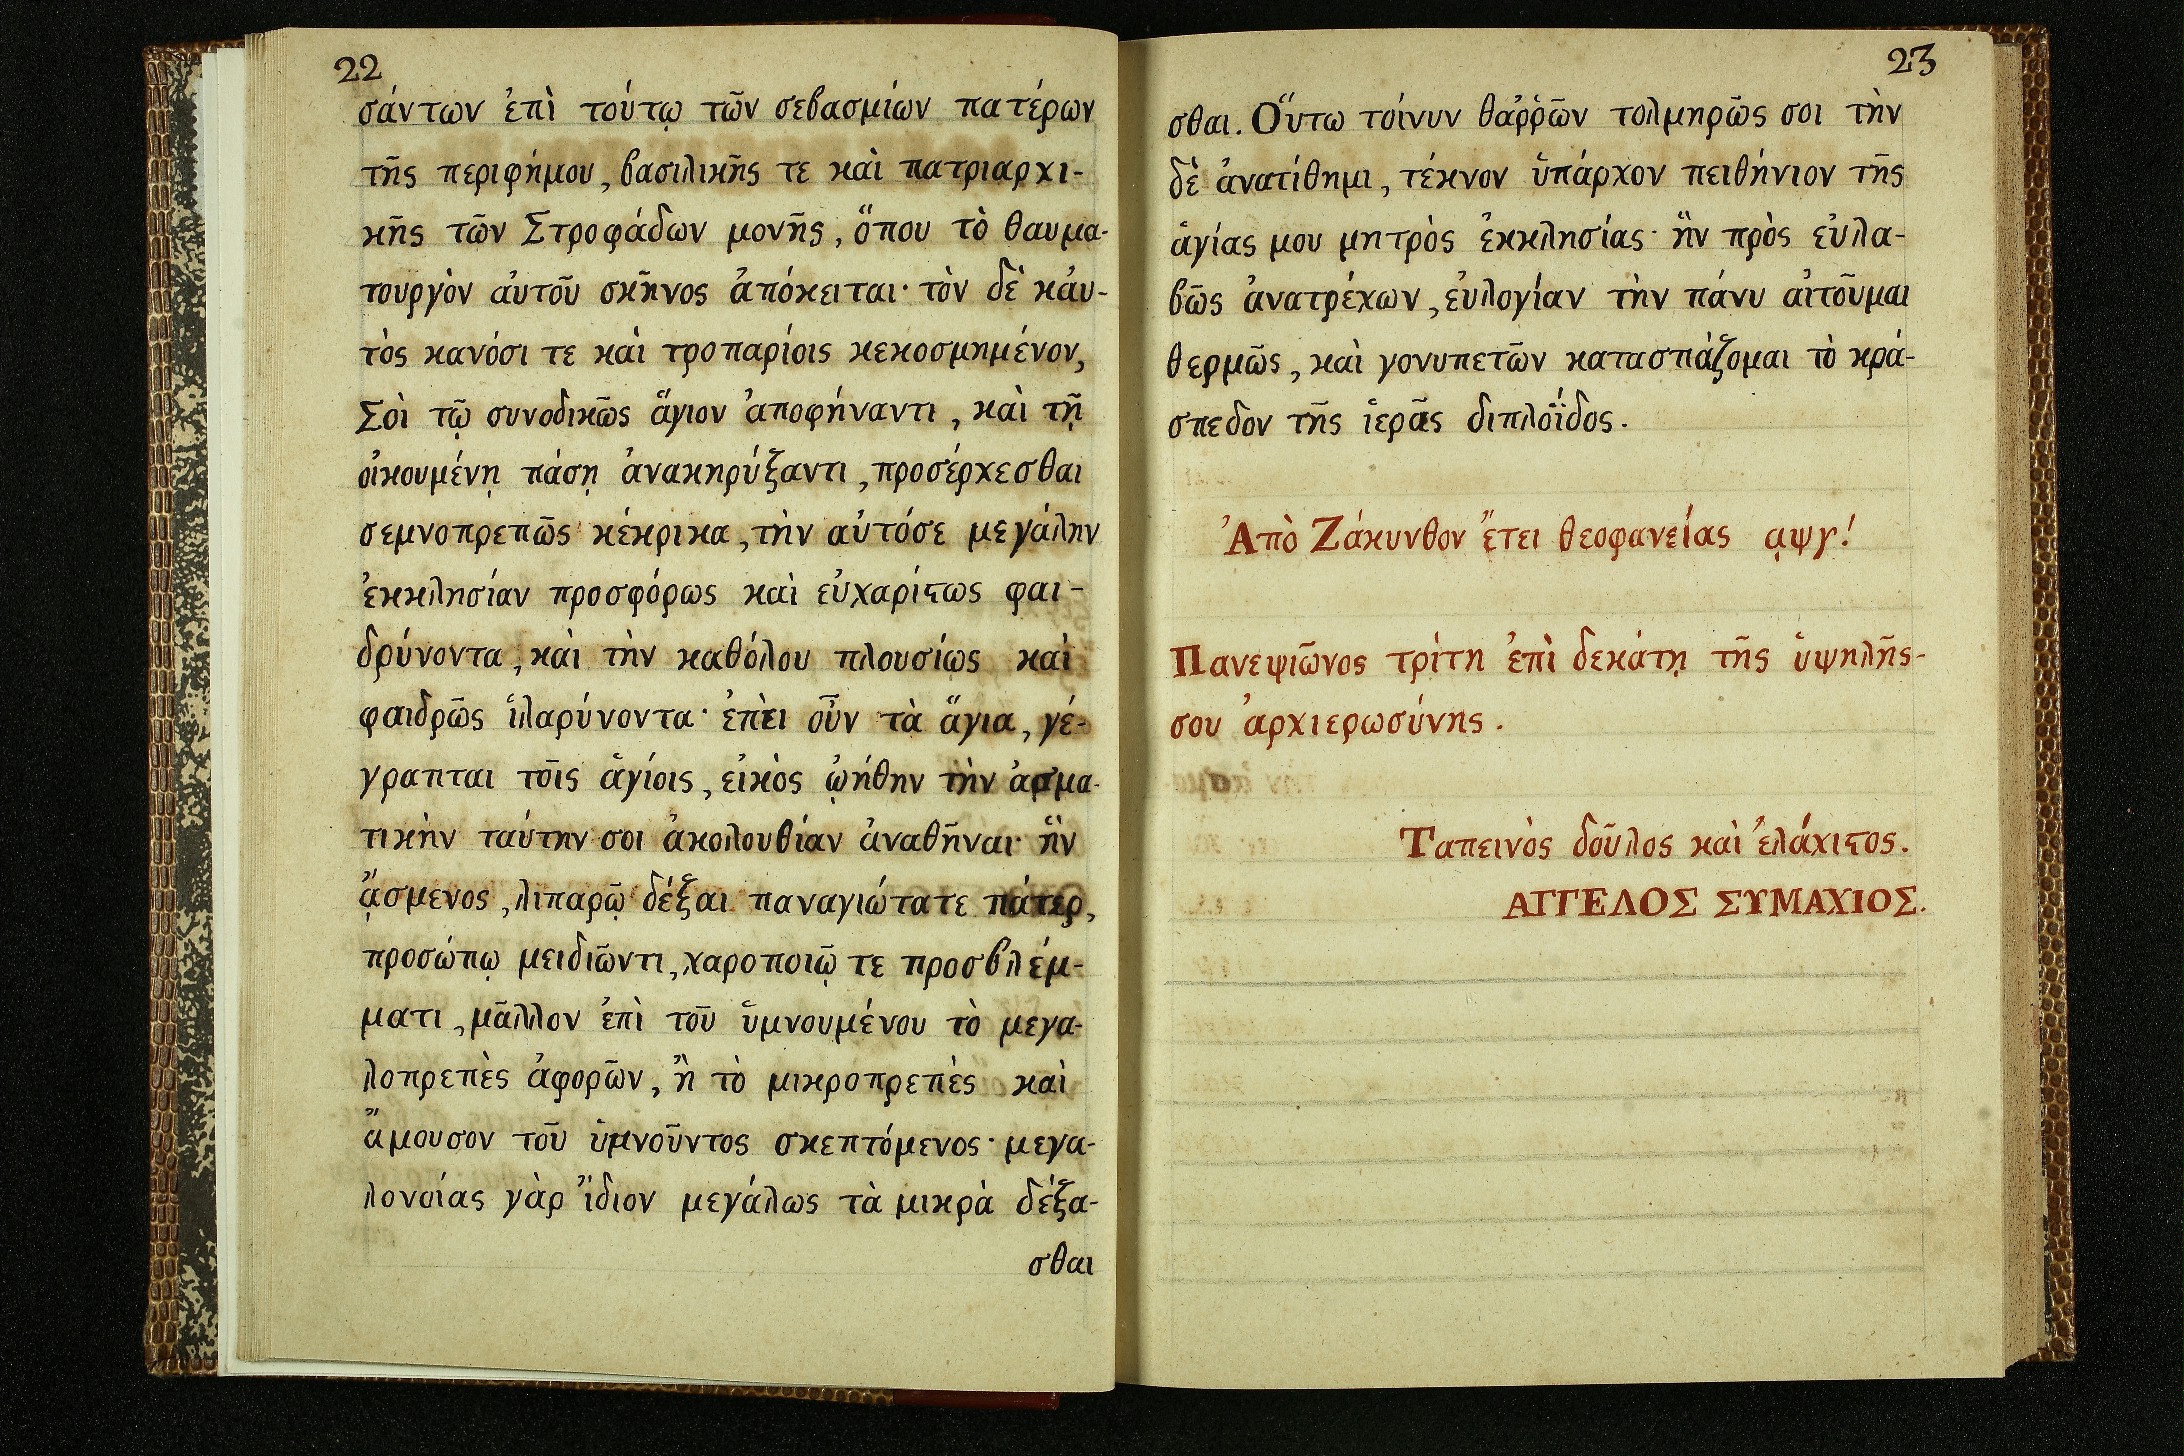 22
σάντων ἐπὶ τούτῳ τῶν σεβασμίων πατέρων
τῆς περιφήμου, βασιλικῆς τε καὶ πατριαρχι-
κῆς τῶν Στροφάδων μονῆς, ὅπου τὸ θαυμα-
τουργὸν αὐτοῦ σκῆνος ἀπόκειται· τὸν δὲ κἀυ-
τὸς κανόσι τε καὶ τροπαρίοις κεκοσμημένον,
Σοὶ τῷ συνοδικῶς ἅγιον ἀποφήναντι, καὶ τῇ
οἰκουμένῃ πάσῃ ἀνακηρύξαντι, προσέρχεσθαι
σεμνοπρεπῶς κέκρικα, τὴν αὐτόσε μεγάλην
ἐκκλησίαν προσφόρως καὶ εὐχαρίϛως φαι-
δρύνοντα, καὶ τὴν καθόλου πλουσίως καὶ
φαιδρῶς ἱλαρύνοντα· ἐπὲι οὖν τὰ ἅγια, γέ-
γραπται τοῖς ἁγίοις, εἰκὸς ᾠήθην τὴν ἀσμα-
τικὴν ταύτην σοι ἀκολουθίαν ἀναθῆναι· ἣν
ᾄσμενος, λιπαρῷ δέξαι παναγιώτατε πάτερ,
προσώπῳ μειδιῶντι, χαροποιῷ τε προσβλέμ-
ματι, μᾶλλον ἐπὶ τοῦ ὑμνουμένου τὸ μεγα-
λοπρεπὲς ἀφορῶν, ἢ τὸ μικροπρεπὲς καὶ
ἄμουσον τοῦ ὑμνοῦντος σκεπτόμενος· μεγα-
λονοίας γὰρ ἴδιον μεγάλως τὰ μικρὰ δέξα-
σθαι
23
σθαι. Οὕτω τοίνυν θαῤῥῶν τολμηρῶς σοι τὴν
δὲ ἀνατίθημι, τέκνον ὑπάρχον πειθήνιον τῆς
ἁγίας μου μητρὸς ἐκκλησίας· ἣν πρὸς εὐλα-
βῶς ἀνατρέχων, εὐλογίαν τὴν πάνυ αἰτοῦμαι
θερμῶς, καὶ γονυπετῶν κατασπάζομαι τὸ κρά-
σπεδον τῆς ἱερᾶς διπλοΐδος.
Ἀπὸ Ζάκυνθον ἔτει θεοφανείας ͵αψγ!
Πανεψιῶνος τρίτη ἐπὶ δεκάτῃ τῆς ὑψηλῆς-
σου ἀρχιερωσύνης.
Ταπεινὸς δοῦλος καὶ ἐλάχιϛος.
ΑΓΓΕΛΟΣ ΣΥΜΑΧΙΟΣ.